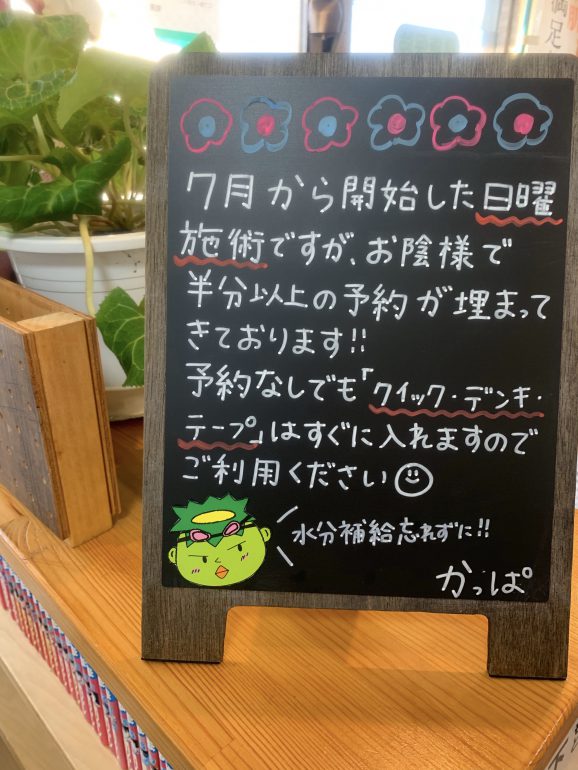 満足
7月から開始した日曜
施術ですが、お陰様で
半分以上の予約が埋まって
きております!!
予約なしでも「クイック・デンキ・
テープ」はすぐに入れますので
ご利用ください
水分補給忘れずに!!
かっぱ